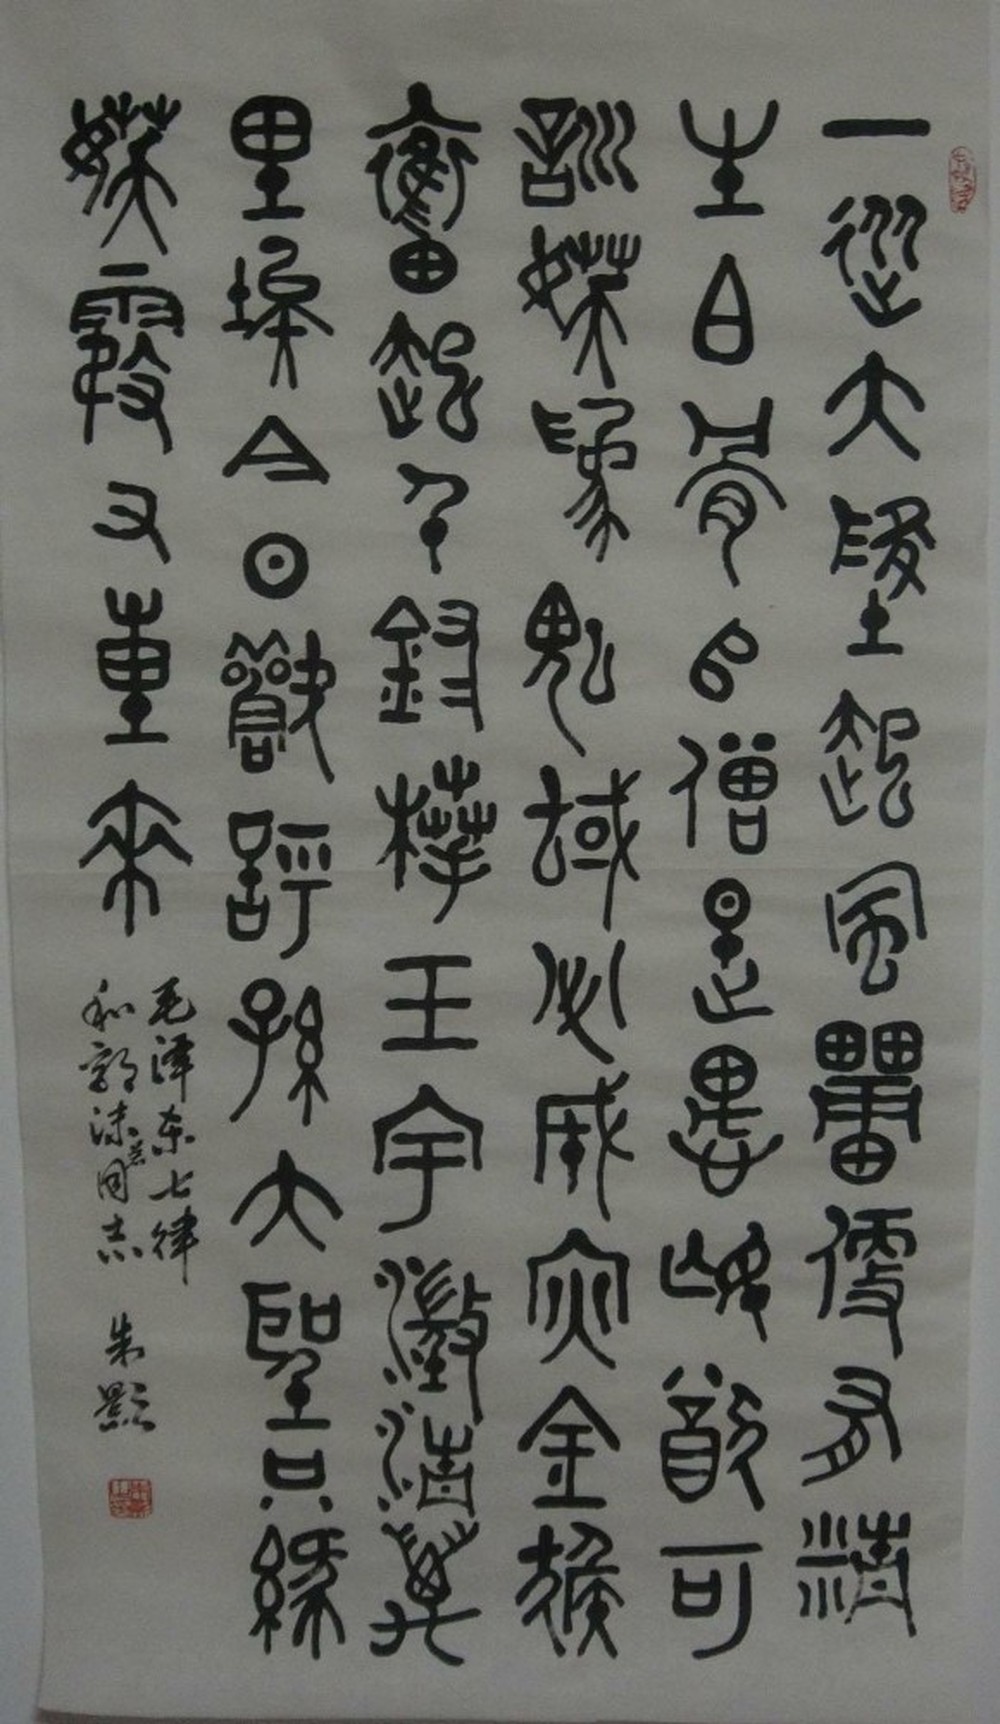 一從大地起風雷便有精
生白骨堆僧是愚氓猶可
訓妖為鬼蜮必成災金猴
奮起千鈞棒玉宇澄清萬
里埃今日歡呼孫大聖只緣
妖霧又重來
毛澤東七律
和郭沫若同志 朱